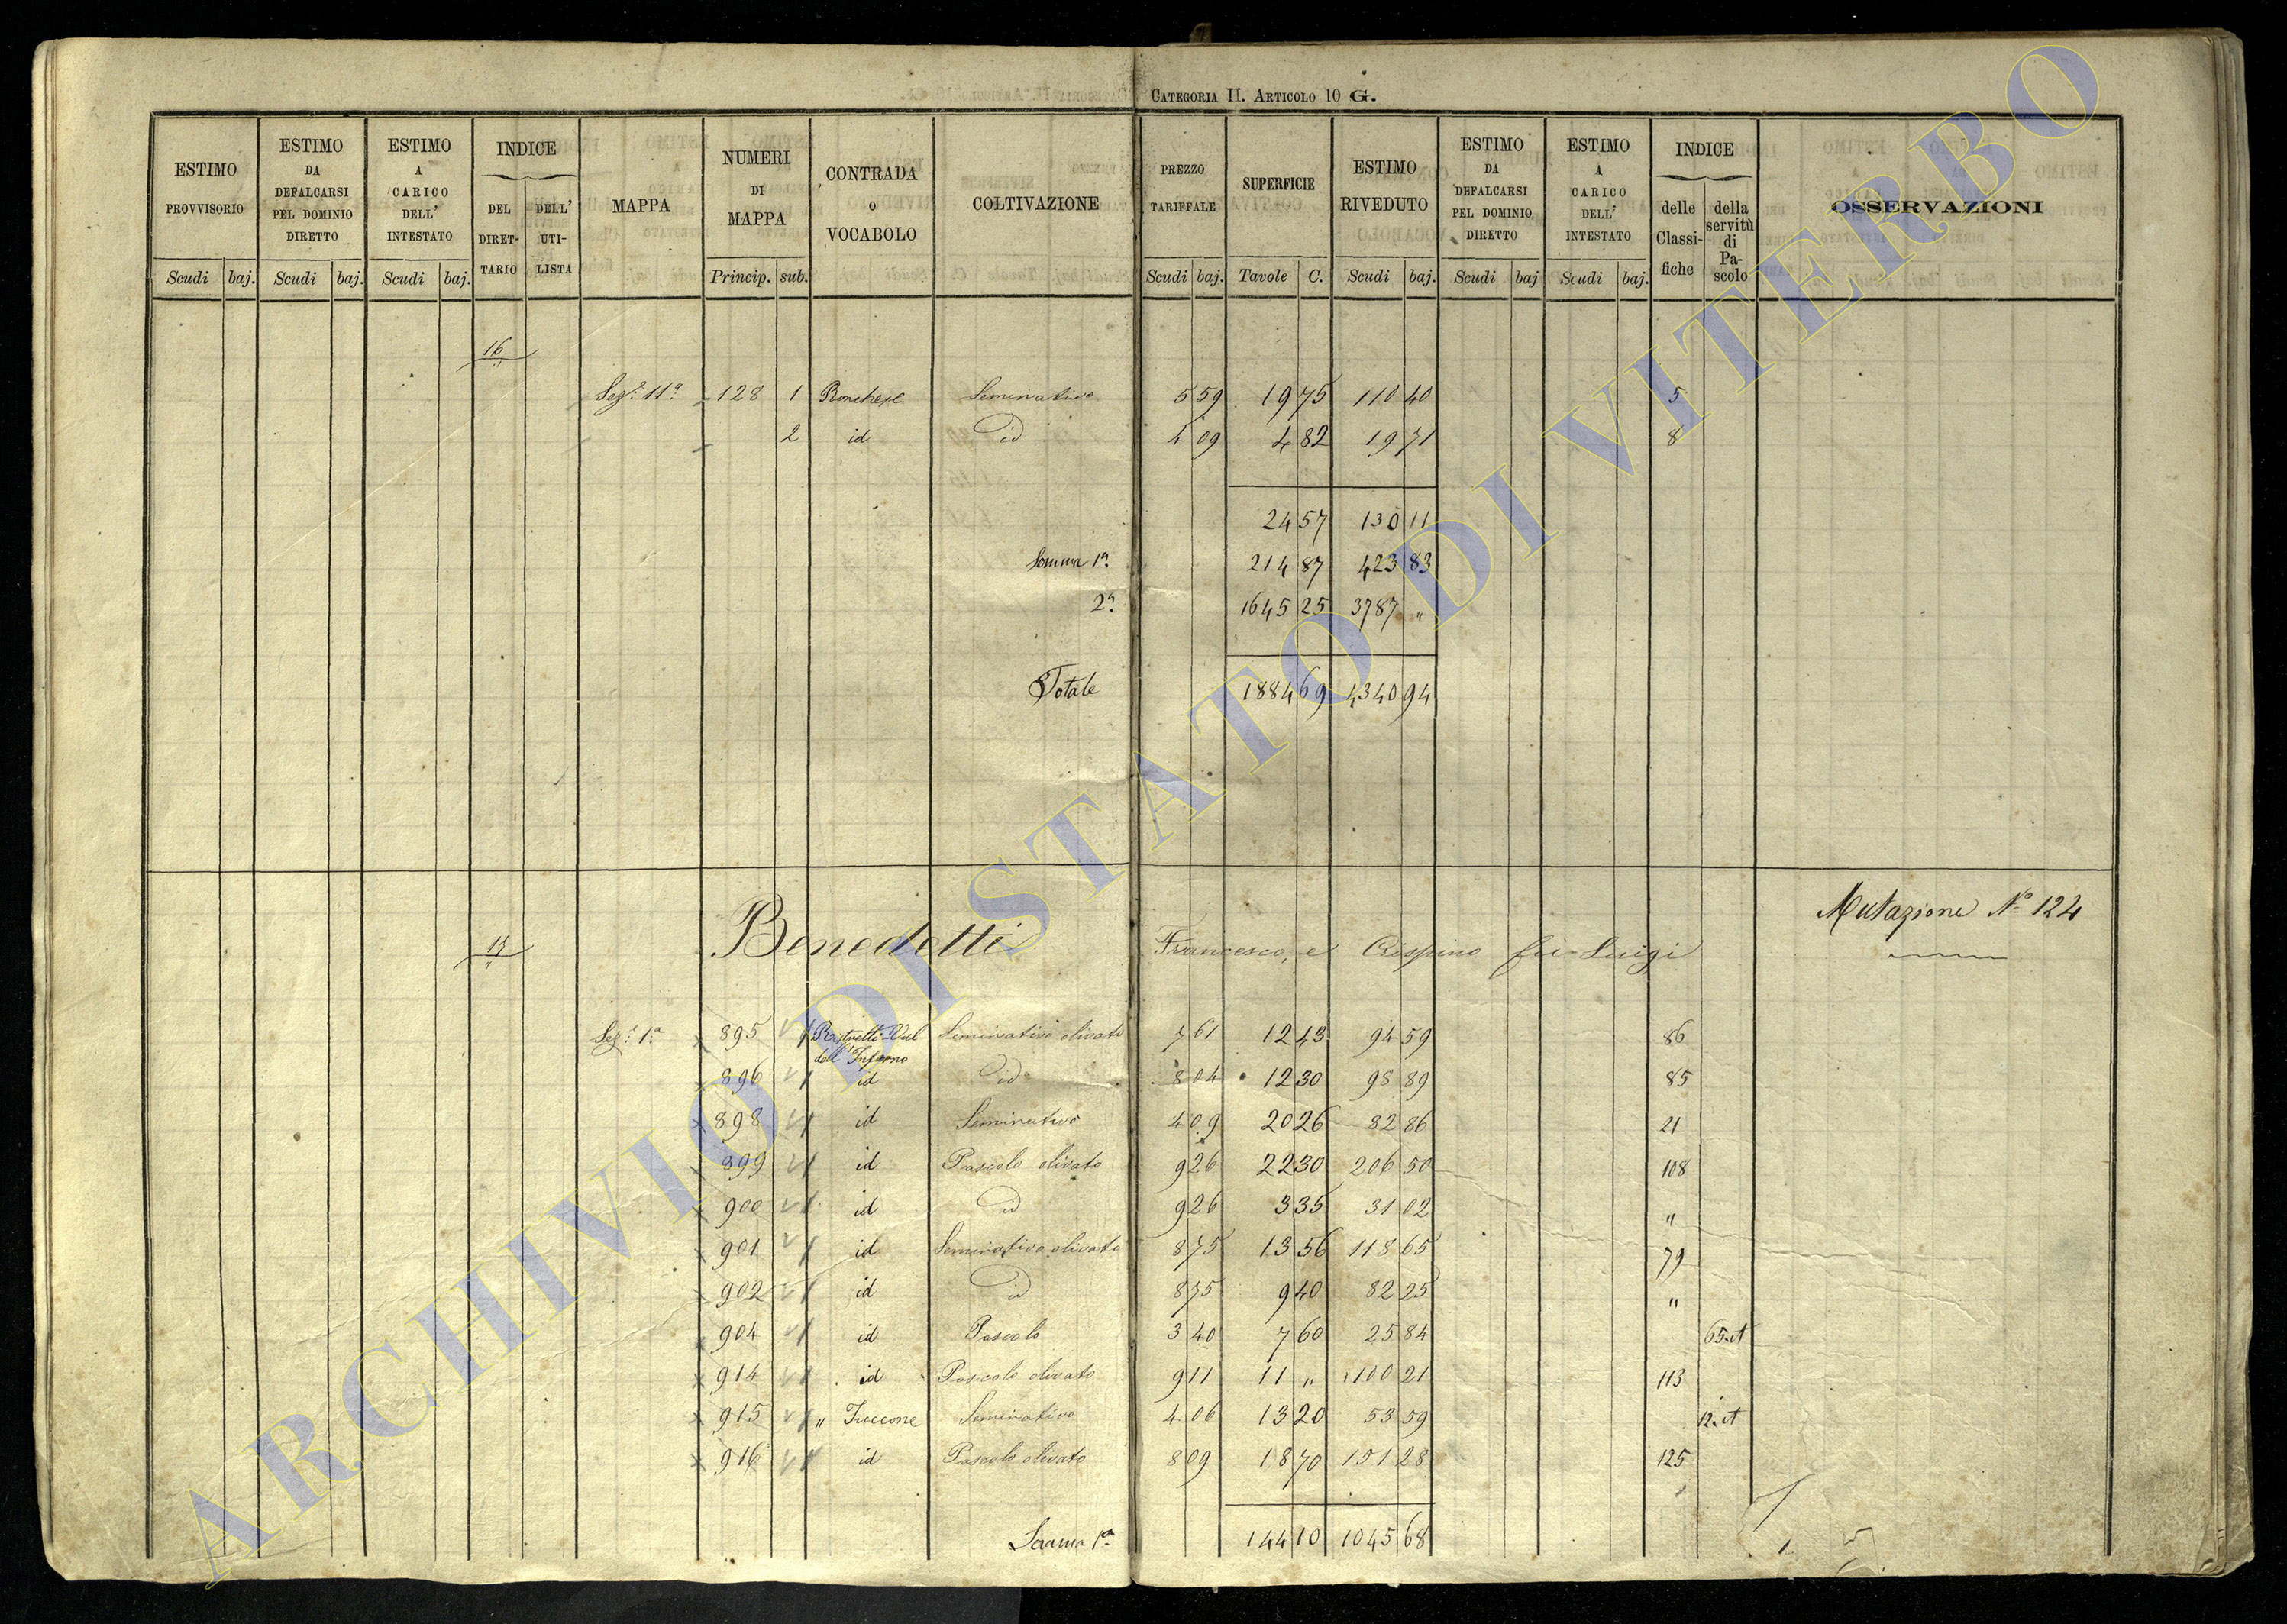 CATEGORIA II. ARTICOLO 10 G.
ESTIMO PROVVISORIO Scudi baj.
ESTIMO DA DEFALCARSI PEL DOMINIO DIRETTO Scudi baj.
ESTIMO A CARICO DELL' INTESTATO Scudi baj.
INDICE DEL DIRETTARIO DELL' UTILISTA
MAPPA
NUMERI DI MAPPA Princip. sub.
CONTRADA O VOCABOLO
COLTIVAZIONE
PREZZO TARIFFALE Scudi baj.
SUPERFICIE Tavole C.
ESTIMO RIVEDUTO Scudi baj.
ESTIMO DA DEFALCARSI PEL DOMINIO DIRETTO Scudi baj
ESTIMO A CARICO DELL' INTESTATO Scudi baj.
INDICE delle Classifiche della servitù di Pascolo
OSSERVAZIONI
16
Sez.e 11a 128 1 Ronchese Seminativo 5 59 19 75 110 40 5
2 id id 4 09 4 82 19 71 8
24 57 130 11
Somma 1a 214 87 423 83
2a 1645 25 3787 "
Totale 1884 69 4340 94
Mutazione No 124
Benedetti Francesco, e Crispino fu Luigi
Sez.e 1a 895 Ristretti Val dell'Inferno Seminativo olivato 7 61 12 43 94 59 86
896 id id 8 04 12 30 98 89 85
898 id Seminativo 4 09 20 26 82 86 21
899 id Pascolo olivato 9 26 22 30 206 50 108
900 id id 9 26 3 35 31 02 "
901 id Seminativo olivato 8 75 13 56 118 65 79
902 id id 8 75 9 40 82 25 "
904 id Pascolo 3 40 7 60 25 84 65.
914 id Pascolo olivato 9 11 11 " 100 21 113
915 " Tuccone Seminativo 4 06 13 20 53 59 12.
916 id Pascolo olivato 8 09 18 70 151 28 125
Somma 1a 144 10 1045 68
ARCHIVIO DI STATO DI VITERBO